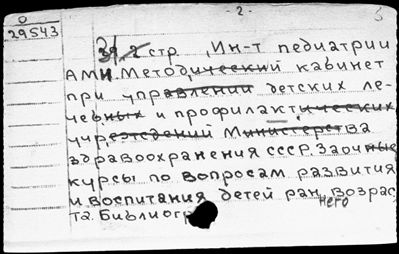 - 2 -
3
О
29543
31
39,2 стр. , Ин-т педиатрии
АМН. Методический кабинет
при управлении детских ле-
чебных и профилактических
учреждений Министерства
здравоохранения СССР. Заочные
курсы по вопросам развития
и воспитания детей ран него возрас
та. Библиогр